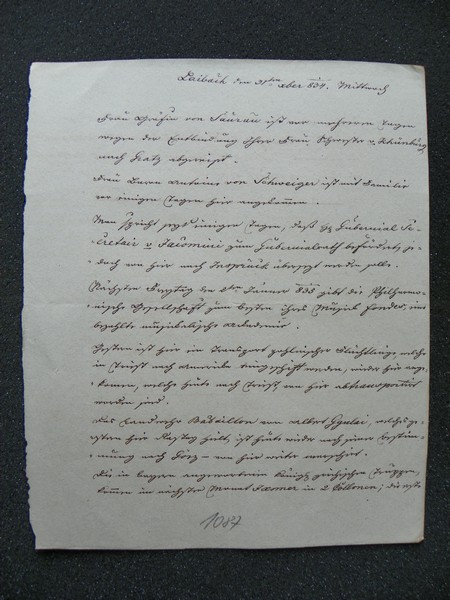 Laibach den 31ten xber 834. Mittwoch
Frau Gräfin von Saurau ist vor mehreren Tagen
wegen der Entbindung Ihrer Frau Schwester v.
nach Gratz abgereist.
Frau Baron Antoinie von Schweiger ist mit Familie
vor einigen Tagen hier angekommen.
Man spricht seit einigen Tagen, daß H. Gubernial Se-
cretair v Jacomini zum Gubernialrath befördert, je-
doch von hier nach Inspruck übersetzt werden solle.
Nächsten Freytag den 2ten Jänner 835 gibt die Philharmo-
nische Gesellschaft zum besten ihres Musik fondes, eine
bezahlte musikalische Academie.
Gestern ist hier ein Transport pohlnischer Flüchtlinge, welche
in Triest nach Amerika eingeschifft werden, wieder hier ange-
kommen, welche heute nach Triest von hier abtransportirt
worden sind.
Das Landwehr Bataillon von Albert Gyulai, welches ge-
stern hier Rasttag hielt, ist heute wieder nach seiner Bestim-
mung nach Görz – von hier weiter marschirt.
Die in Bayern angeworbenen königl. griechischen Truppen,
kommen im nächsten Monat Jänner in 2 Collonen; die erste
1087